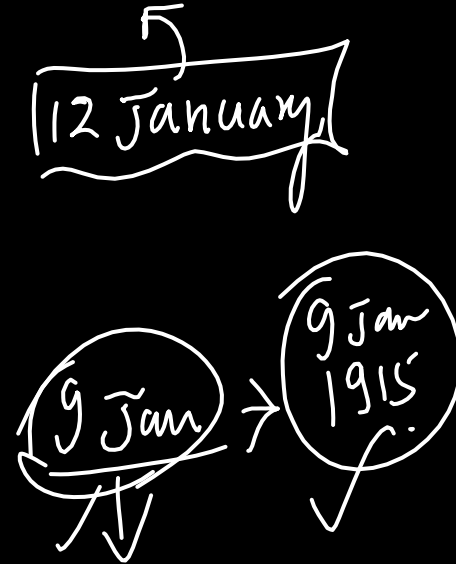 12 January
9 Jan
9 Jan
1915